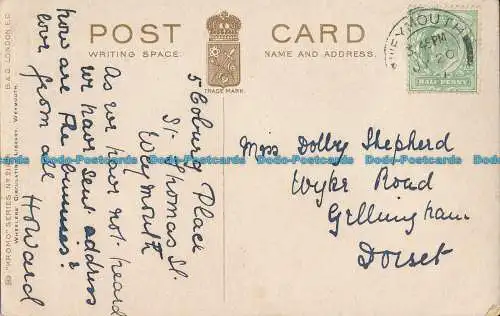 POST CARD
WRITING SPACE.
NAME AND ADDRESS.
TRADE MARK.
WEYMOUTH
45 PM
20
HALF PENNY
5 Coburg Place
St. Thomas St.
Weymouth
As we have not heard
we have sent address
how are the bunnies?
love from all
Howard
Miss Dolly Shepherd
Wyke Road
Gillingham
Dorset
B & D. LONDON, E.C.
"KROMO" SERIES No
WHEELERS CIRCULATING LIBRARY, WEYMOUTH
Dodo-Postcards.com